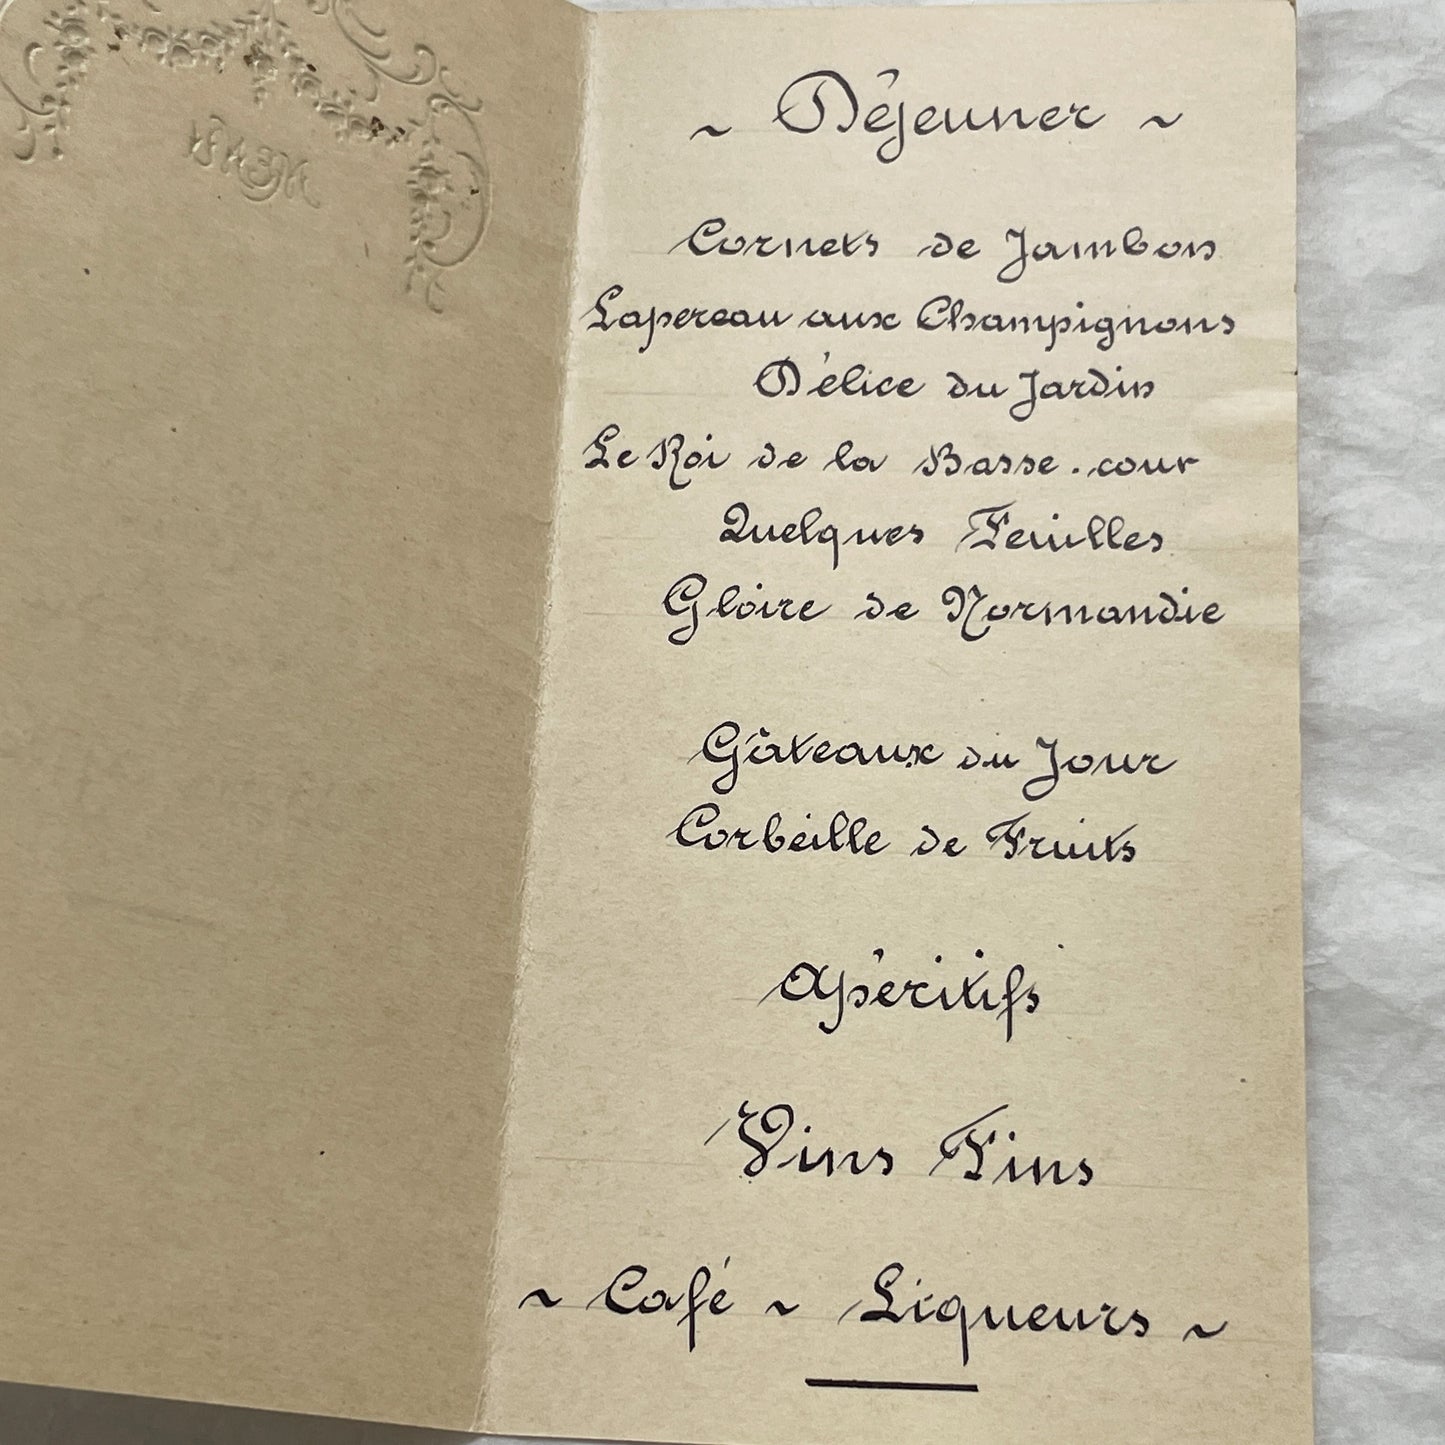 ~ Déjeuner ~
Cornets de Jambon
Lapereau aux Champignons
Délice du Jardin
Le Roi de la Basse-cour
Quelques Feuilles
Gloire de Normandie
Gâteaux du Jour
Corbeille de Fruits
Apéritifs
Vins Fins
~ Café ~ Liqueurs ~